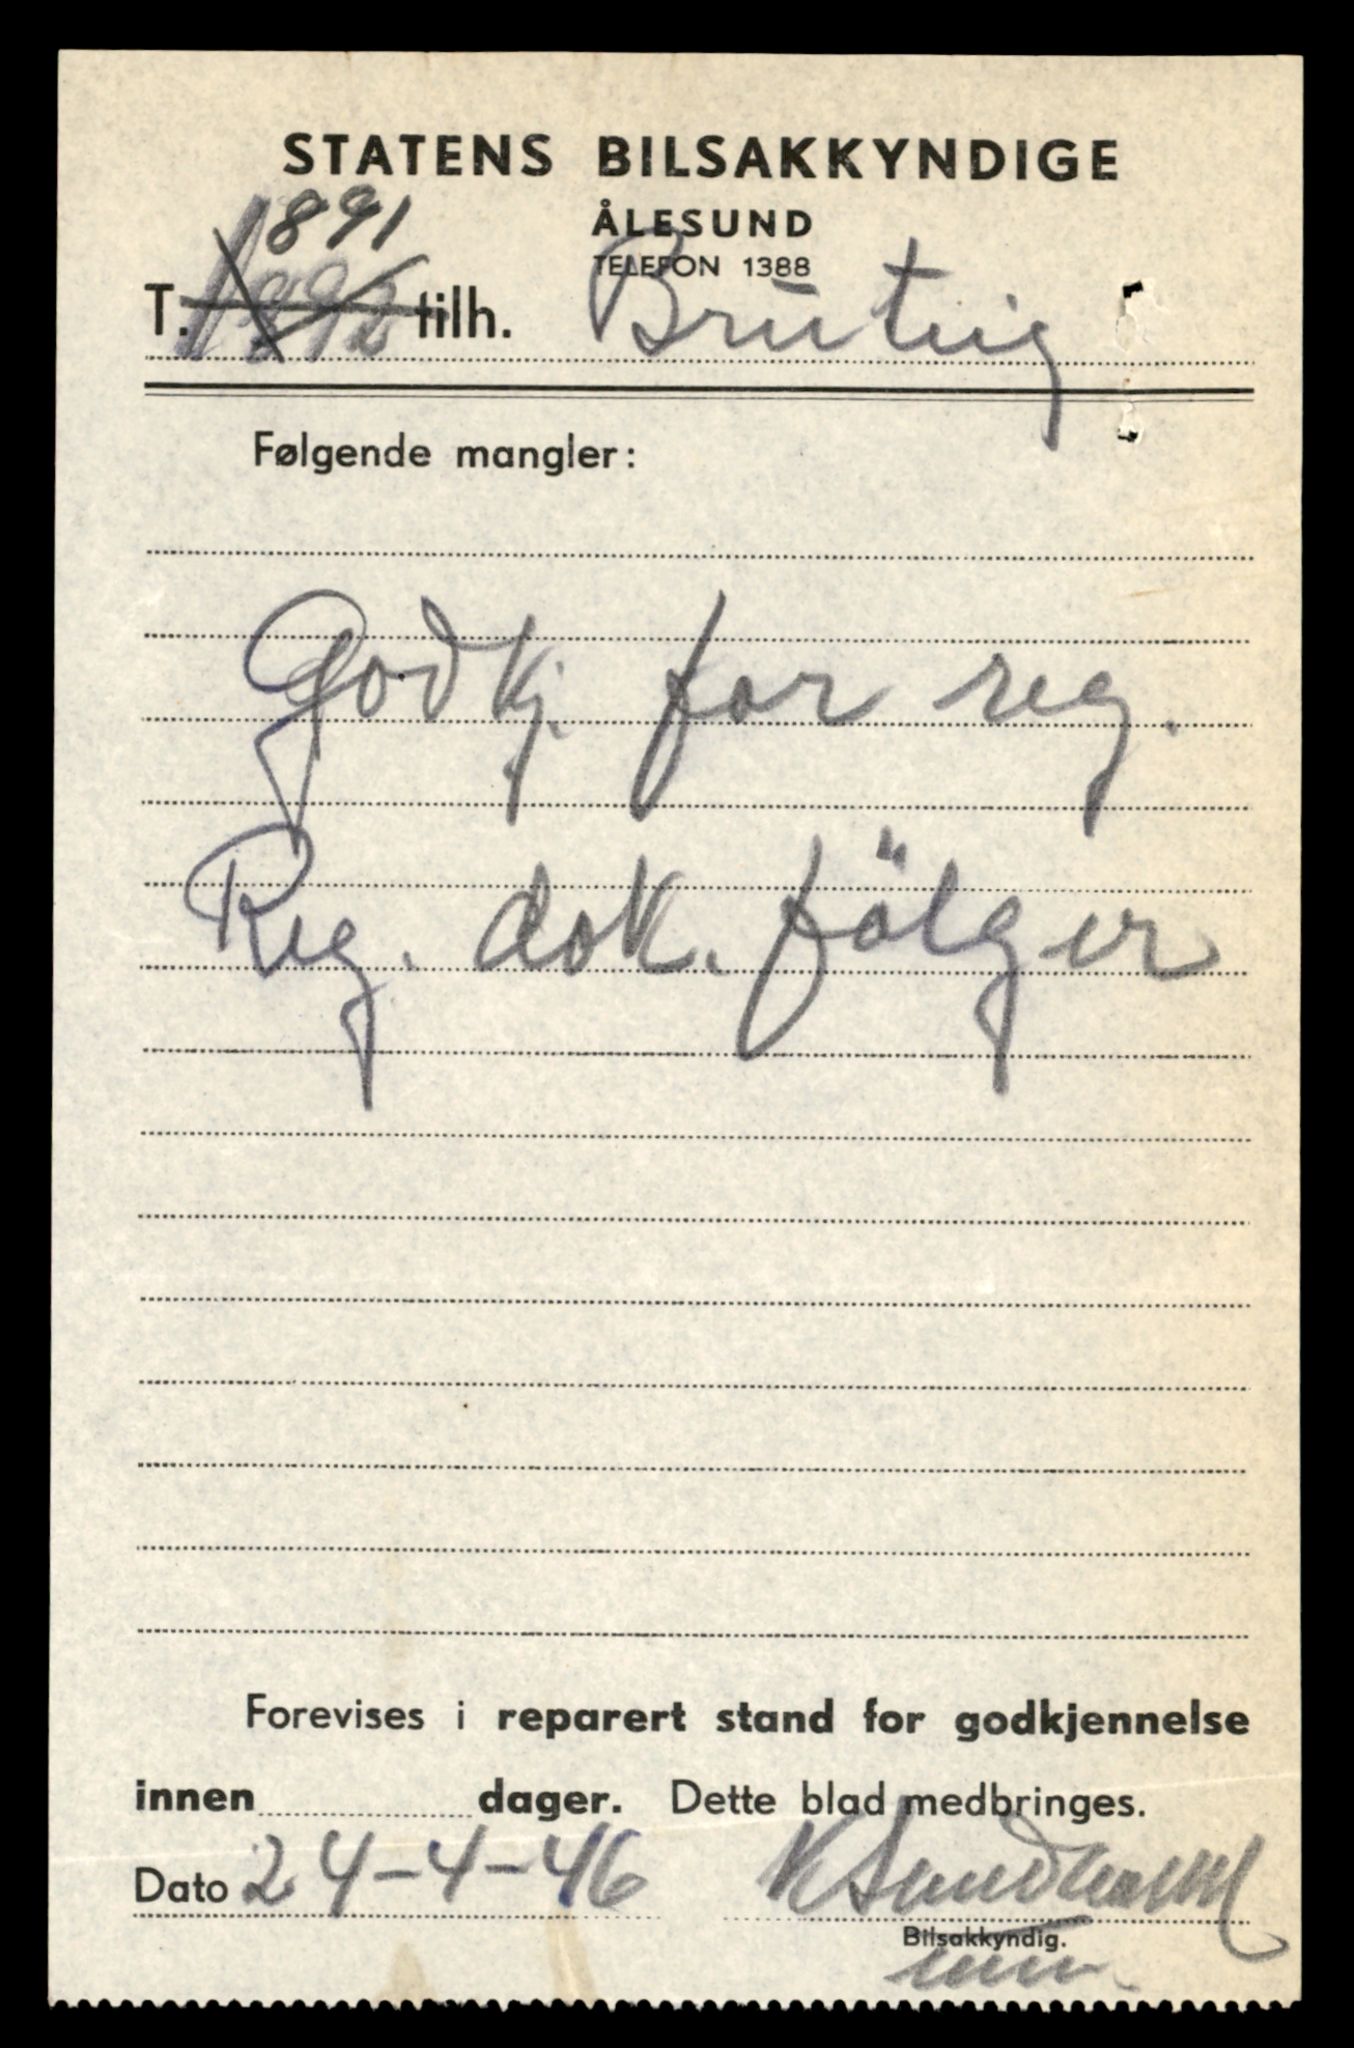 STATENS BILSAKKYNDIGE
ÅLESUND
TELEFON 1388
1891
T. 1892 tilh. Brūtnig
Følgende mangler:
Godkj. for reg.
Reg. dok. fölger
Forevises i reparert stand for godkjennelse
innen dager. Dette blad medbringes.
Dato 24-4-46
Bilsakkyndig.